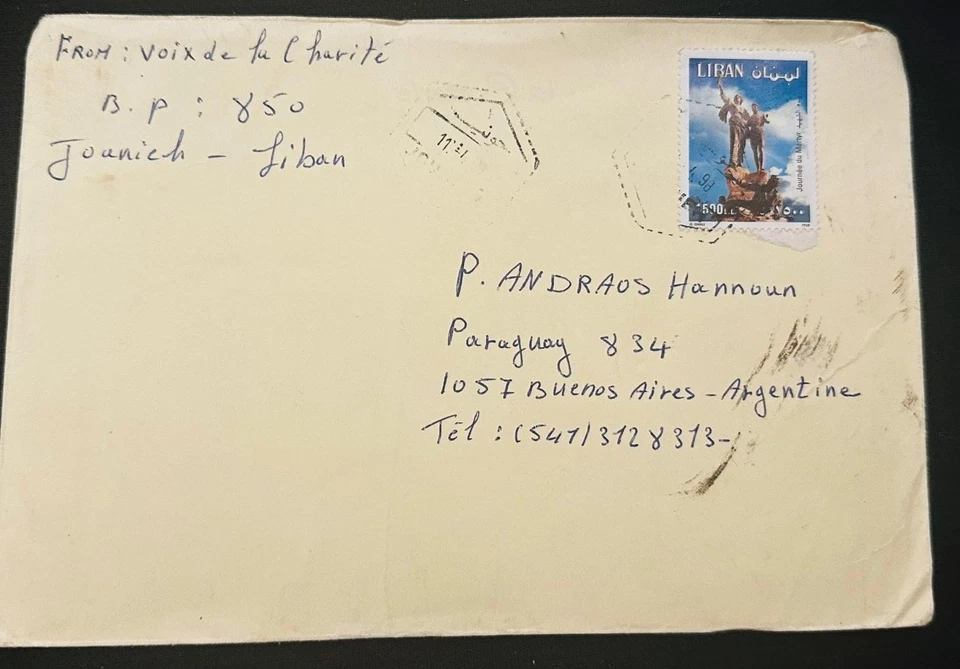 FROM : Voix de la Charité
B. P : 850
Jounieh - Liban
LIBAN لبنان
Journée du Martyr
1500 ١٥٠٠
P. ANDRAOS Hannoun
Paraguay 834
1057 Buenos Aires - Argentine
Tél : (541) 3128313-